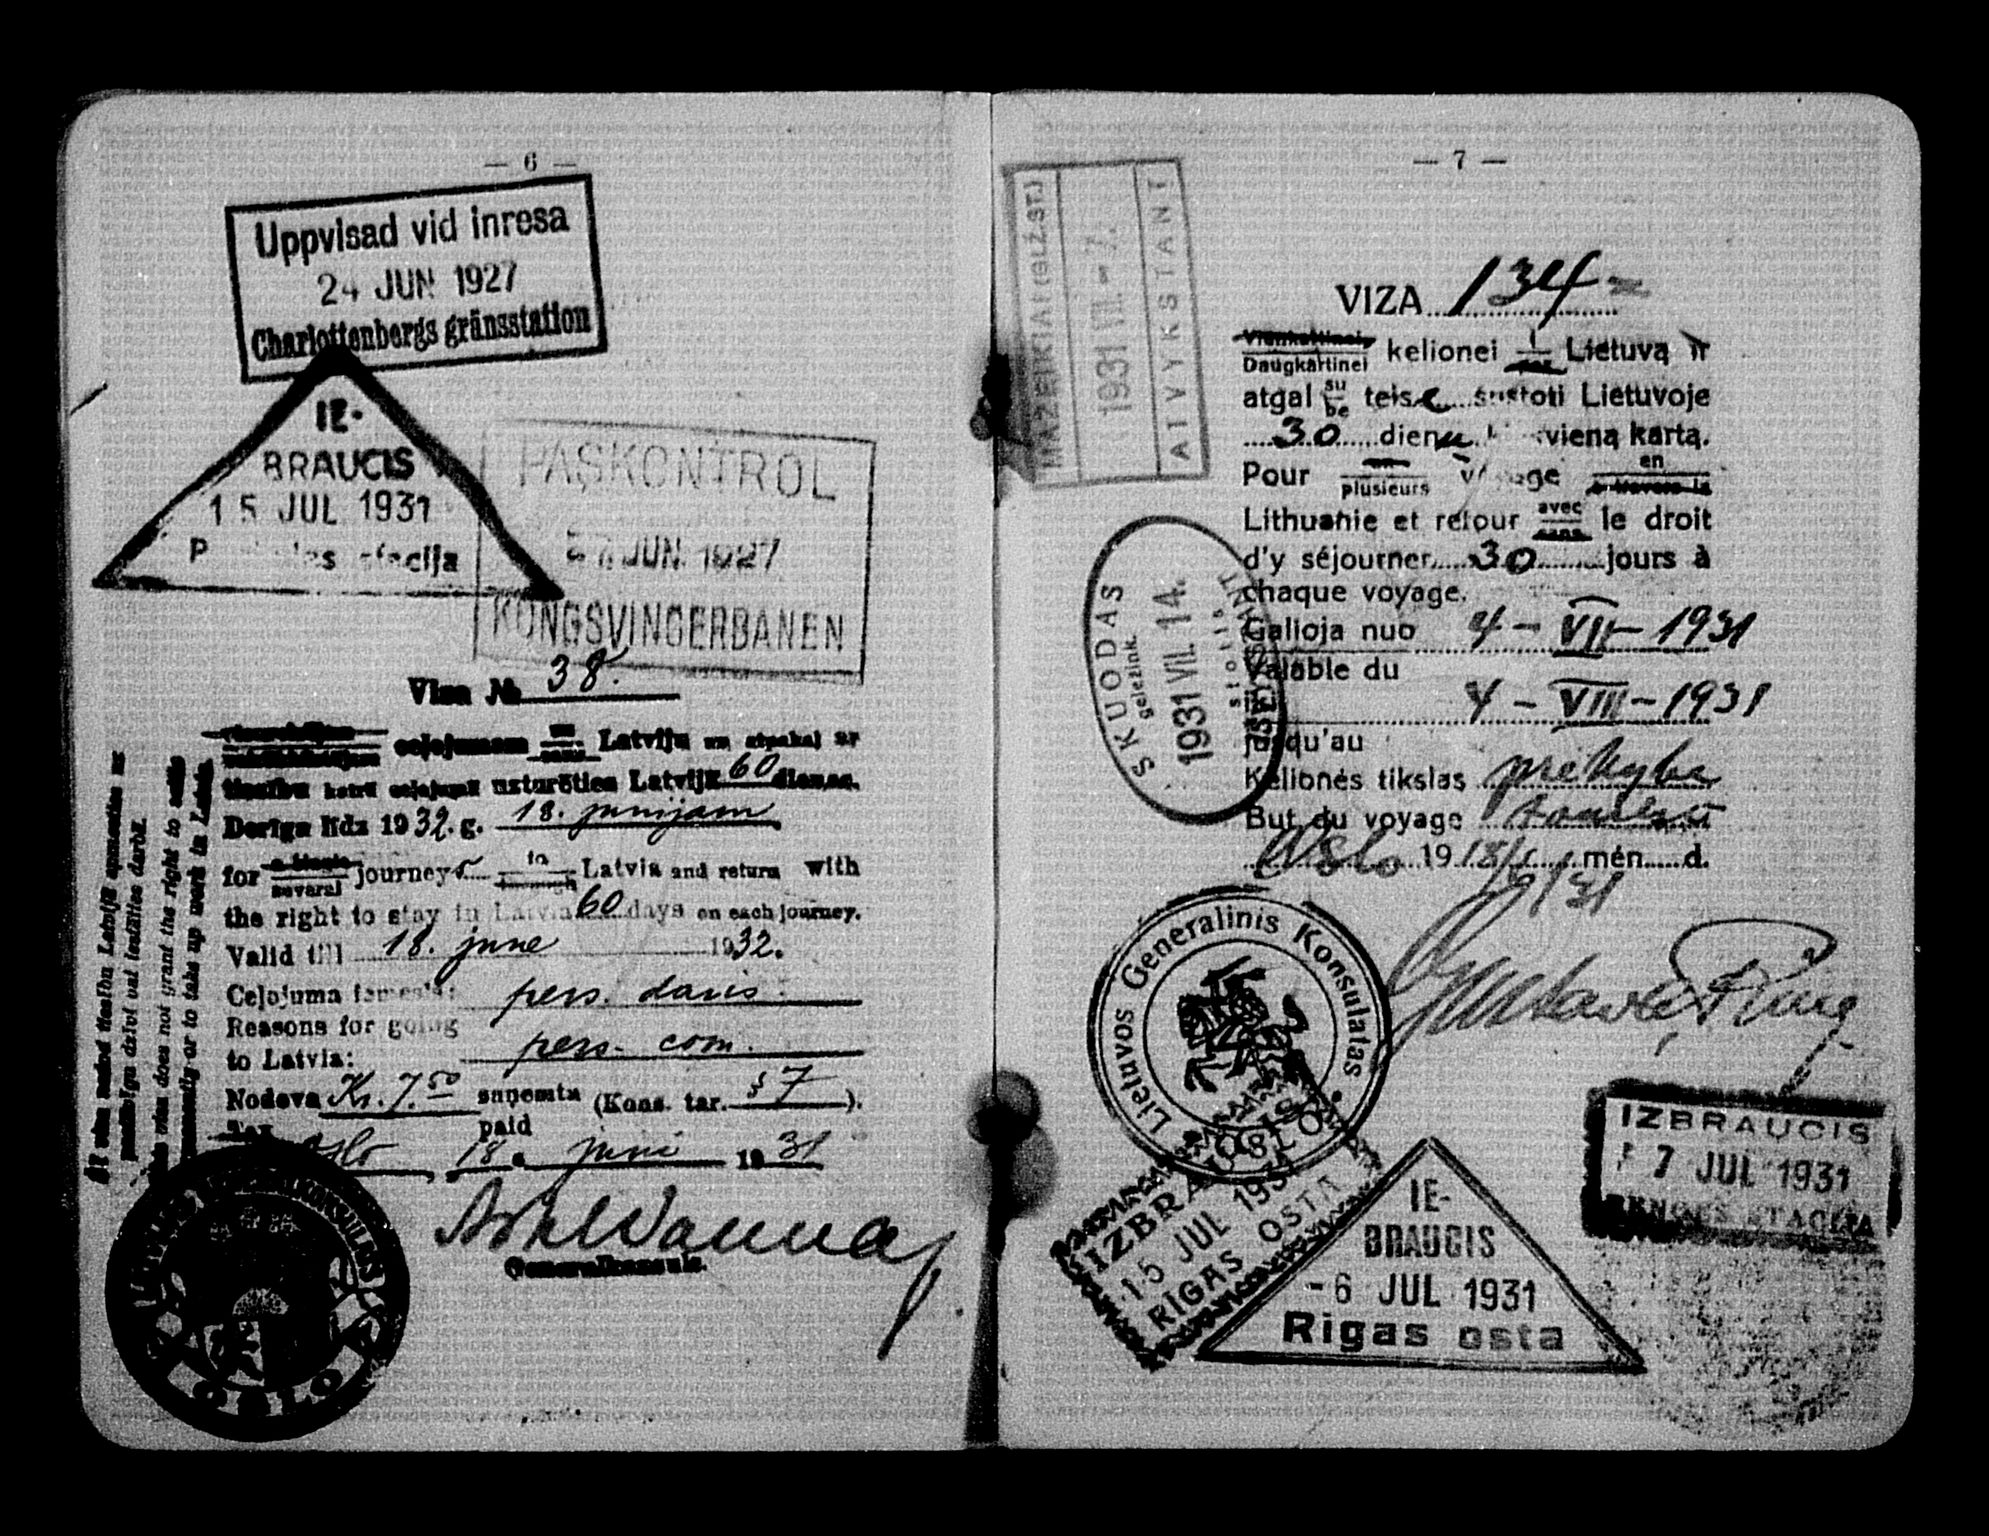 — 6 —
Uppvisad vid inresa
24 JUN 1927
Charlottenbergs gränsstation
IE-
BRAUCIS
15 JUL 1931
stacija
PASKONTROL
JUN. 1927
KONGSVINGERBANEN
Viza № 38.
ceļojumam uz Latviju un atpakaļ ar
tiesību katrā ceļojumā uzturēties Latvijā 60 dienas.
Derīga līdz 1932. g. 18. junijam
for a single several journeys to through Latvia and return with
the right to stay in Latvia 60 days on each journey.
Valid till 18. june 1932.
Ceļojuma iemesls: pers. daris.
Reasons for going
to Latvia: pers. com.
Nodeva Kr. 7.50 saņemta (Kons. tar. § 7 ).
paid
Oslo 18. juni 1931
Generalkonsuls.
OSLO
does not grant the right to settle
permanently or to take up work in Latvia.
— 7 —
MAŽEIKIAI (gelž.st.)
1931 VII. - 7.
ATVYKSTANT
VIZA 134
Vienkartinei Daugkartinei kelionei į per Lietuvą ir
atgal su be teise sustoti Lietuvoje
30 dienų kiekvieną kartą.
Pour un plusieurs voyage en à travers la
Lithuanie et retour avec sans le droit
d'y séjourner 30 jours à
chaque voyage.
Galioja nuo 4 – VII – 1931
Valable du
iki 4 – VIII – 1931
jusqu'au
Kelionės tikslas prekyba
But du voyage
Oslo 19 18/6 mėn. d.
SKUODAS
geležink.
1931 VII. 14.
stotis
IŠVYKSTANT
Lietuvos Generalinis Konsulatas
OSLO
IZBRAUCIS
15 JUL 1931
RIGAS OSTA
IE-
BRAUCIS
-6 JUL 1931
Rigas osta
IZBRAUCIS
7 JUL 1931